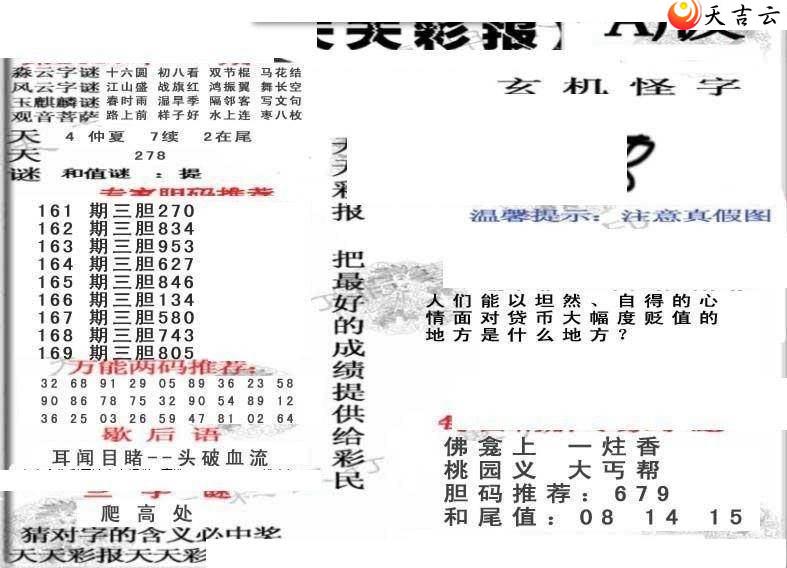 天吉云
天天彩报
森云字谜 十六圆 初八看 双节棍 马花结
风云字谜 江山盛 战旗红 鸿振翼 舞长空
玉麒麟谜 春时雨 湿早季 隔邻客 写文句
观音菩萨 路上前 样子好 水上连 枣八枚
天 4 仲夏 7续 2在尾
天 278
谜 和值谜 : 提
专家胆码推荐
161 期三胆270
162 期三胆834
163 期三胆953
164 期三胆627
165 期三胆846
166 期三胆134
167 期三胆580
168 期三胆743
169 期三胆805
万能两码推荐:
32 68 91 29 05 89 36 23 58
90 86 78 75 32 90 54 89 12
36 25 03 26 59 47 81 02 64
歇后语
耳闻目睹--头破血流
三字谜
爬高处
猜对字的含义必中奖
天天彩报天天彩
天天彩报 把最好的成绩提供给彩民
玄机怪字
温馨提示: 注意真假图
人们能以坦然、自得的心
情面对贷币大幅度贬值的
地方是什么地方?
佛龛上 一炷香
桃园义 大丐帮
胆码推荐: 679
和尾值: 08 14 15